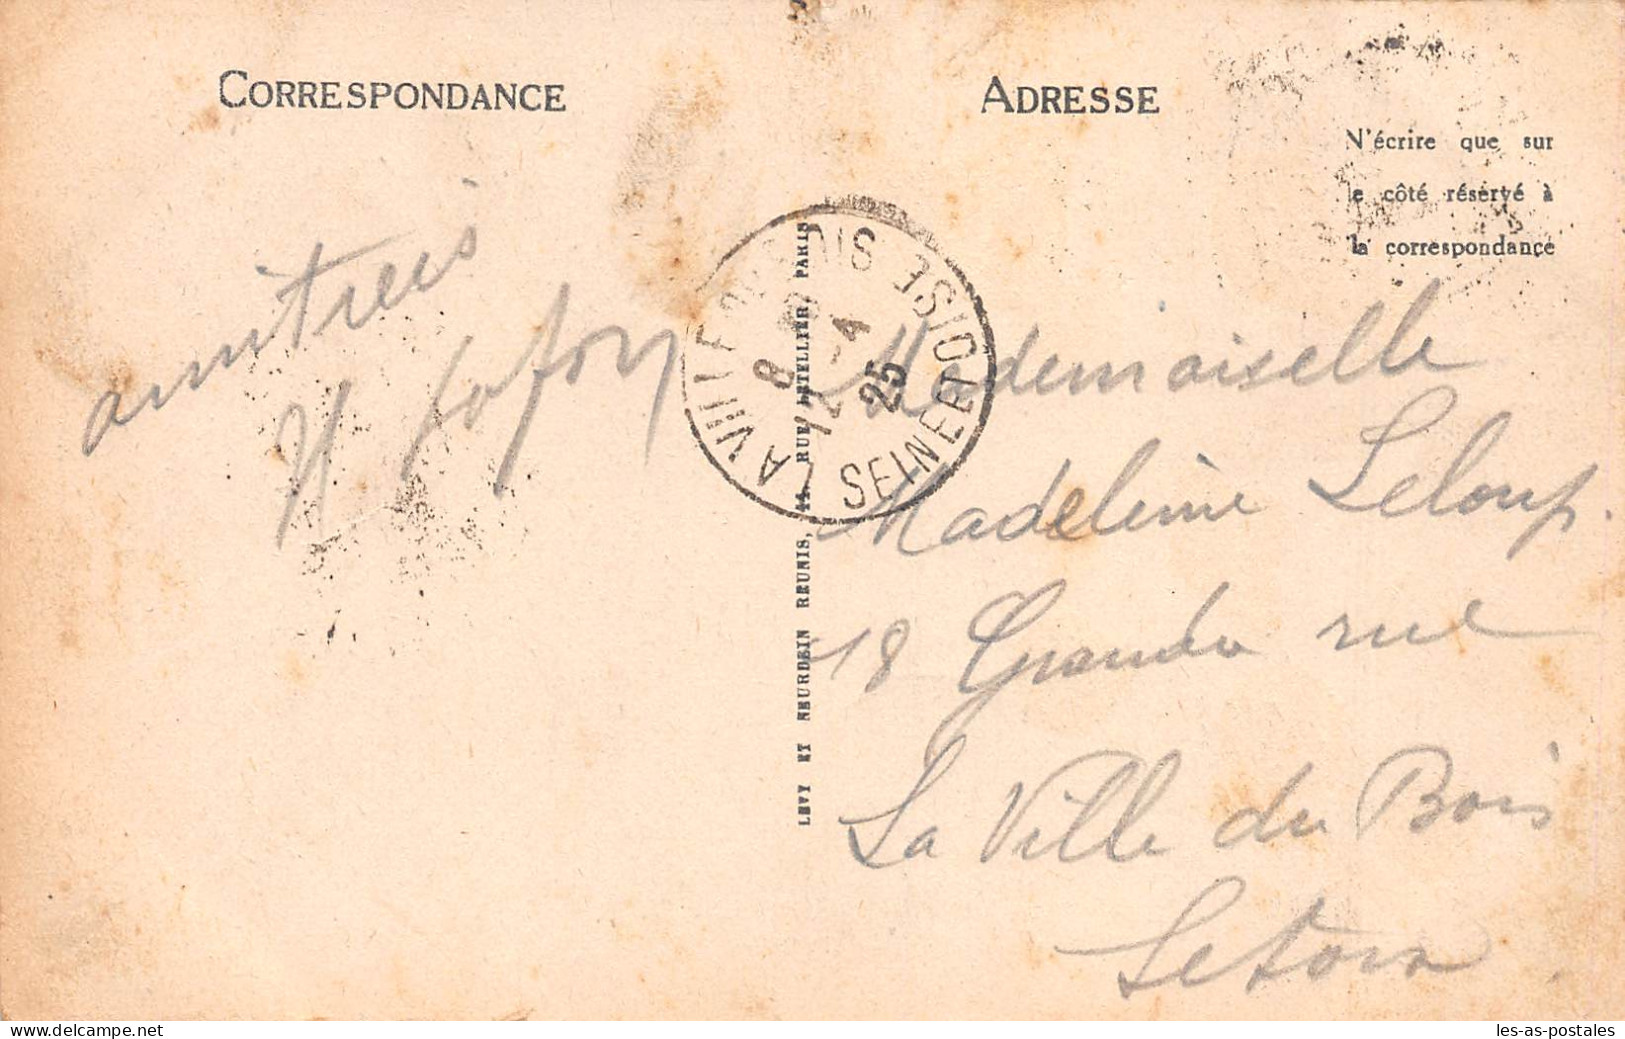 CORRESPONDANCE
ADRESSE
N'écrire que sur
le côté réservé à
la correspondance
amitiés
LA VILLE
SEINE ET OISE
12 - 4
25
LEVY ET NEURDEIN REUNIS, 44, RUE LETELLIER, PARIS
Mademoiselle
Madeleine Leloup.
18 Grande rue
La Ville du Bois
Set Oise
www.las-as-postales.com
les-as-postales